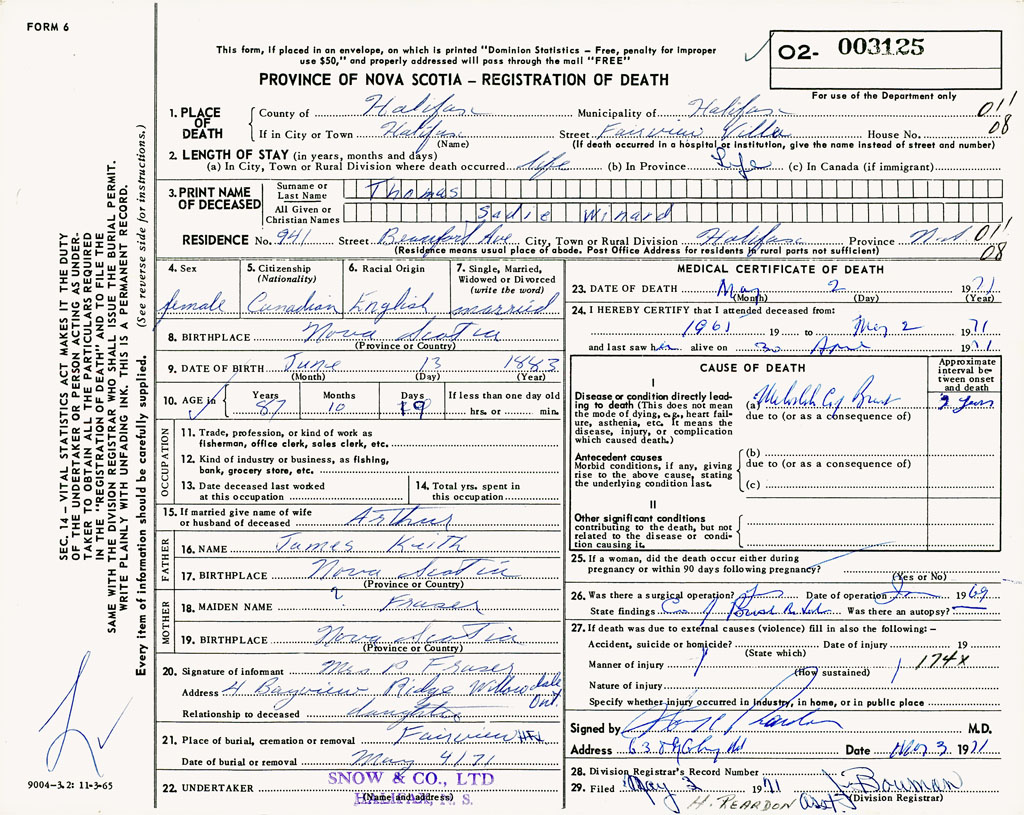 FORM 6
This form, if placed in an envelope, on which is printed "Dominion Statistics – Free, penalty for improper
use $50," and properly addressed will pass through the mail "FREE"
O2- 003125
PROVINCE OF NOVA SCOTIA – REGISTRATION OF DEATH
For use of the Department only
1. PLACE OF DEATH County of Halifax Municipality of Halifax 011
If in City or Town Halifax Street Fairview Villa House No. 08
(Name) (If death occurred in a hospital or institution, give the name instead of street and number)
2. LENGTH OF STAY (in years, months and days)
(a) In City, Town or Rural Division where death occurred life (b) In Province Life (c) In Canada (if immigrant)
3. PRINT NAME OF DECEASED Surname or Last Name Thomas
All Given or Christian Names Sadie Winard
RESIDENCE No. 941 Street Beaufort Ave City, Town or Rural Division Halifax Province N.S. 011
(Residence means place of abode. Post Office Address for residents in rural parts not sufficient) 08
4. Sex female
5. Citizenship (Nationality) Canadian
6. Racial Origin English
7. Single, Married, Widowed or Divorced (write the word) married
8. BIRTHPLACE Nova Scotia
(Province or Country)
9. DATE OF BIRTH June 13 1883
(Month) (Day) (Year)
10. AGE in Years 87 Months 10 Days 19 If less than one day old hrs. or min.
OCCUPATION
11. Trade, profession, or kind of work as
fisherman, office clerk, sales clerk, etc.
12. Kind of industry or business, as fishing,
bank, grocery store, etc.
13. Date deceased last worked
at this occupation
14. Total yrs. spent in
this occupation
15. If married give name of wife
or husband of deceased Arthur
FATHER
16. NAME James Keith
17. BIRTHPLACE Nova Scotia
(Province or Country)
MOTHER
18. MAIDEN NAME ? Fraser
19. BIRTHPLACE Nova Scotia
(Province or Country)
20. Signature of informant Mrs P. Fraser
Address 4 Bayview Ridge Willowdale Ont.
Relationship to deceased daughter
21. Place of burial, cremation or removal Fairview HFX
Date of burial or removal May 4/71
22. UNDERTAKER SNOW & CO., LTD
(Name and address)
HALIFAX, N. S.
MEDICAL CERTIFICATE OF DEATH
23. DATE OF DEATH May 2 1971
(Month) (Day) (Year)
24. I HEREBY CERTIFY that I attended deceased from:
1961 19 to May 2 1971
and last saw h alive on 30 April 1971
CAUSE OF DEATH
Approximate interval between onset and death
I
Disease or condition directly leading to death (This does not mean the mode of dying, e.g., heart failure, asthenia, etc. It means the disease, injury, or complication which caused death.)
(a) 2 years
due to (or as a consequence of)
Antecedent causes
Morbid conditions, if any, giving rise to the above cause, stating the underlying condition last.
(b)
due to (or as a consequence of)
(c)
II
Other significant conditions
contributing to the death, but not
related to the disease or condition causing it.
25. If a woman, did the death occur either during
pregnancy or within 90 days following pregnancy?
(Yes or No)
26. Was there a surgical operation? Date of operation 1969
State findings Was there an autopsy?
27. If death was due to external causes (violence) fill in also the following: –
Accident, suicide or homicide? Date of injury 19
(State which)
Manner of injury 174X
(How sustained)
Nature of injury
Specify whether injury occurred in industry, in home, or in public place
Signed by M.D.
Address Date May 3 1971
28. Division Registrar's Record Number
29. Filed May 3 1971 J. Bowman
H. REARDON asst. (Division Registrar)
SEC. 14 – VITAL STATISTICS ACT MAKES IT THE DUTY
OF THE UNDERTAKER OR PERSON ACTING AS UNDER-
TAKER TO OBTAIN ALL THE PARTICULARS REQUIRED
IN THE "REGISTRATION OF DEATH" AND TO FILE THE
SAME WITH THE DIVISION REGISTRAR WHO SHALL ISSUE THE BURIAL PERMIT.
WRITE PLAINLY WITH UNFADING INK. THIS IS A PERMANENT RECORD.
Every item of information should be carefully supplied. (See reverse side for instructions.)
9004-3.2: 11-3-65